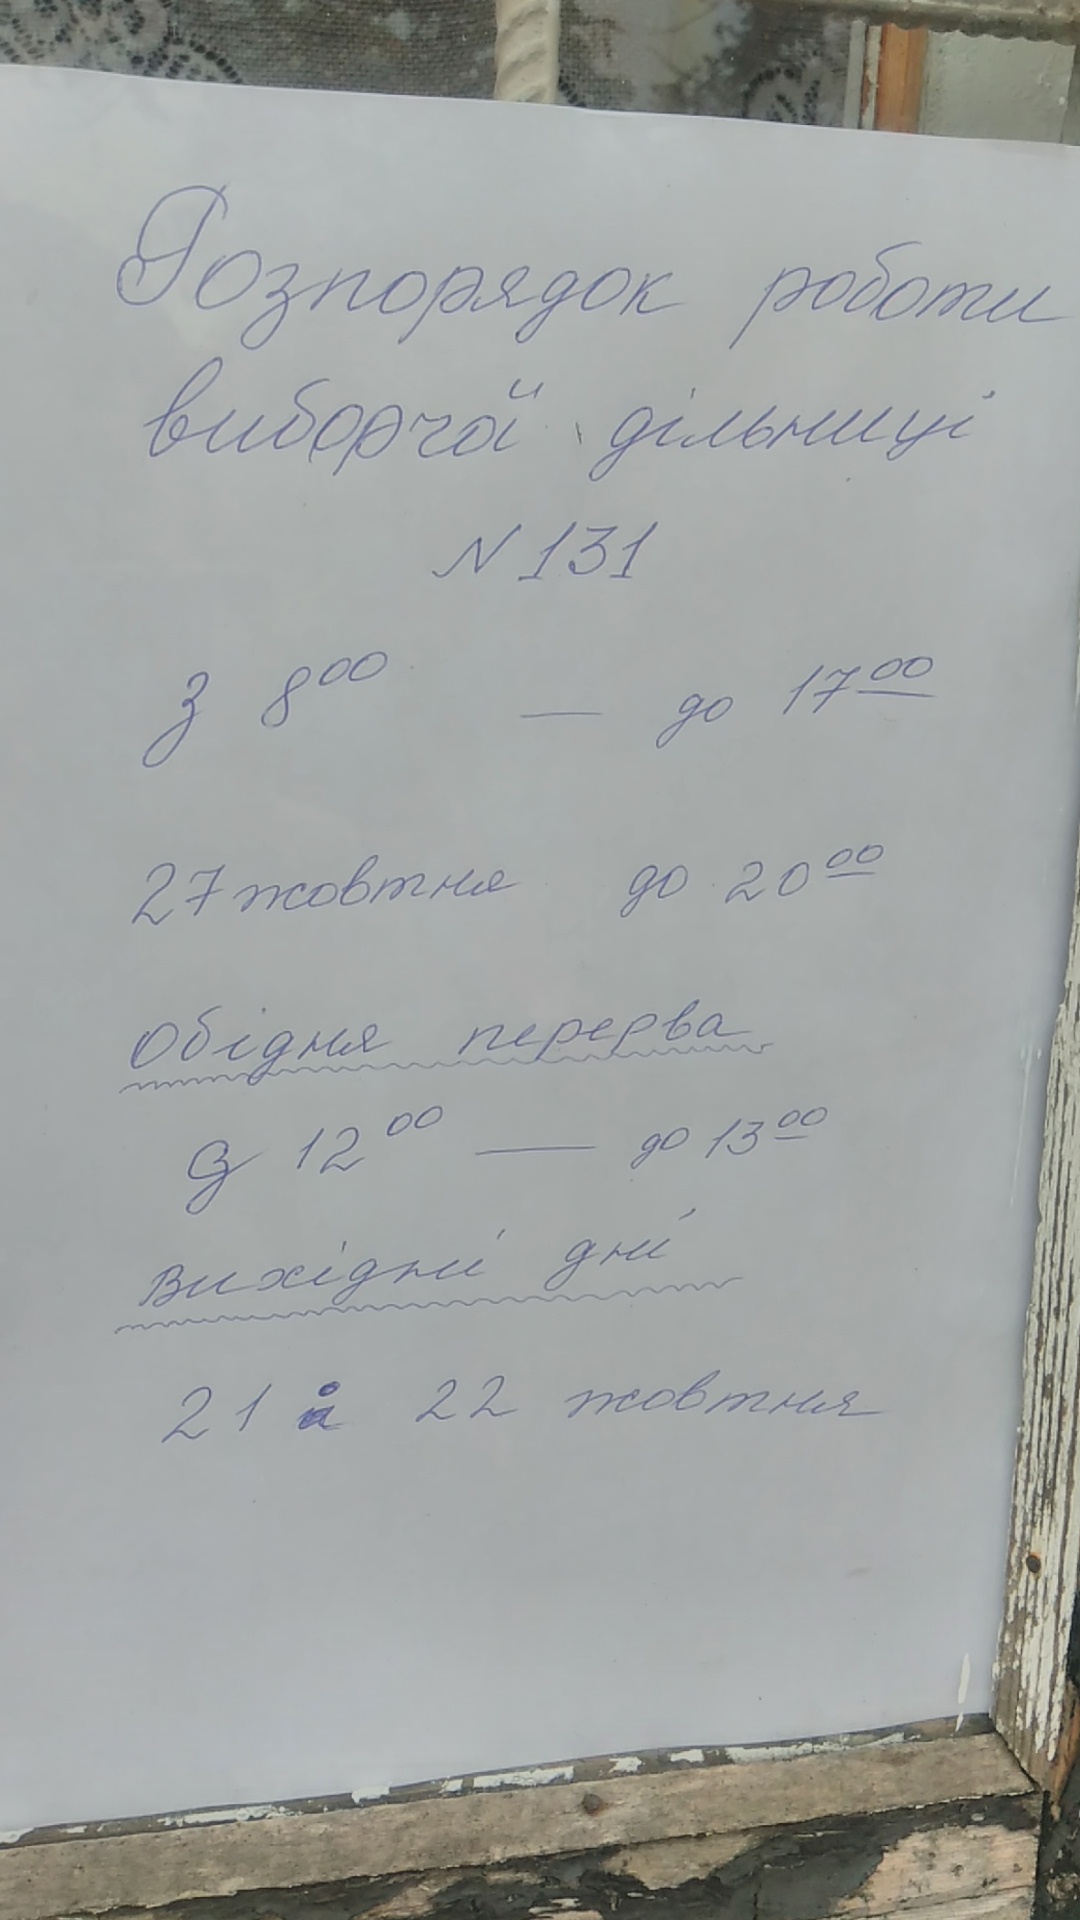 Розпорядок роботи
виборчої дільниці
N 131
З 8⁰⁰ — до 17⁰⁰
27 жовтня до 20⁰⁰
Обідня перерва
З 12⁰⁰ — до 13⁰⁰
Вихідні дні
21 і 22 жовтня